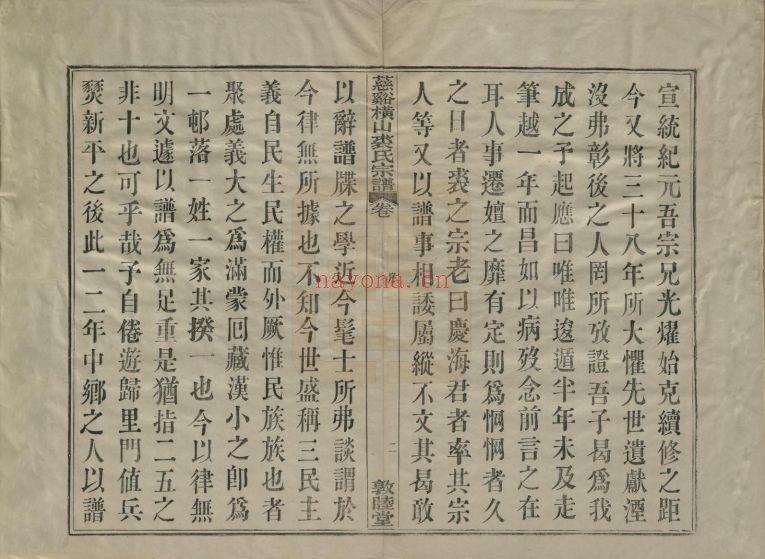 宣統紀元吾宗兄光燿始克續修之距
今又將三十八年所大懼先世遺獻湮
沒弗彰後之人罔所攷證吾子曷爲我
成之予起應曰唯唯逡遁半年未及走
筆越一年而昌如以病歿念前言之在
耳人事遷嬗之靡有定則爲惘惘者久
之日者裘之宗老曰慶海君者率其宗
人等又以譜事相諉屬縱不文其曷敢
慈谿橫山裘氏宗譜
卷
序
二
敦睦堂
以辭譜牒之學近今髦士所弗談謂於
今律無所據也不知今世盛稱三民主
義自民生民權而外厥惟民族族也者
聚處義大之爲滿蒙回藏漢小之卽爲
一邨落一姓一家其揆一也今以律無
明文遽以譜爲無足重是猶指二五之
非十也可乎哉予自倦遊歸里門値兵
燹新平之後此一二年中鄉之人以譜
nayona.cn